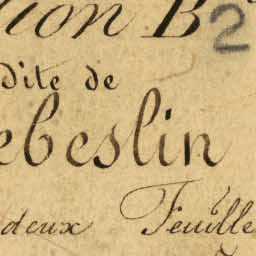 tion B 2
dite de
ebeslin
deux Feuille